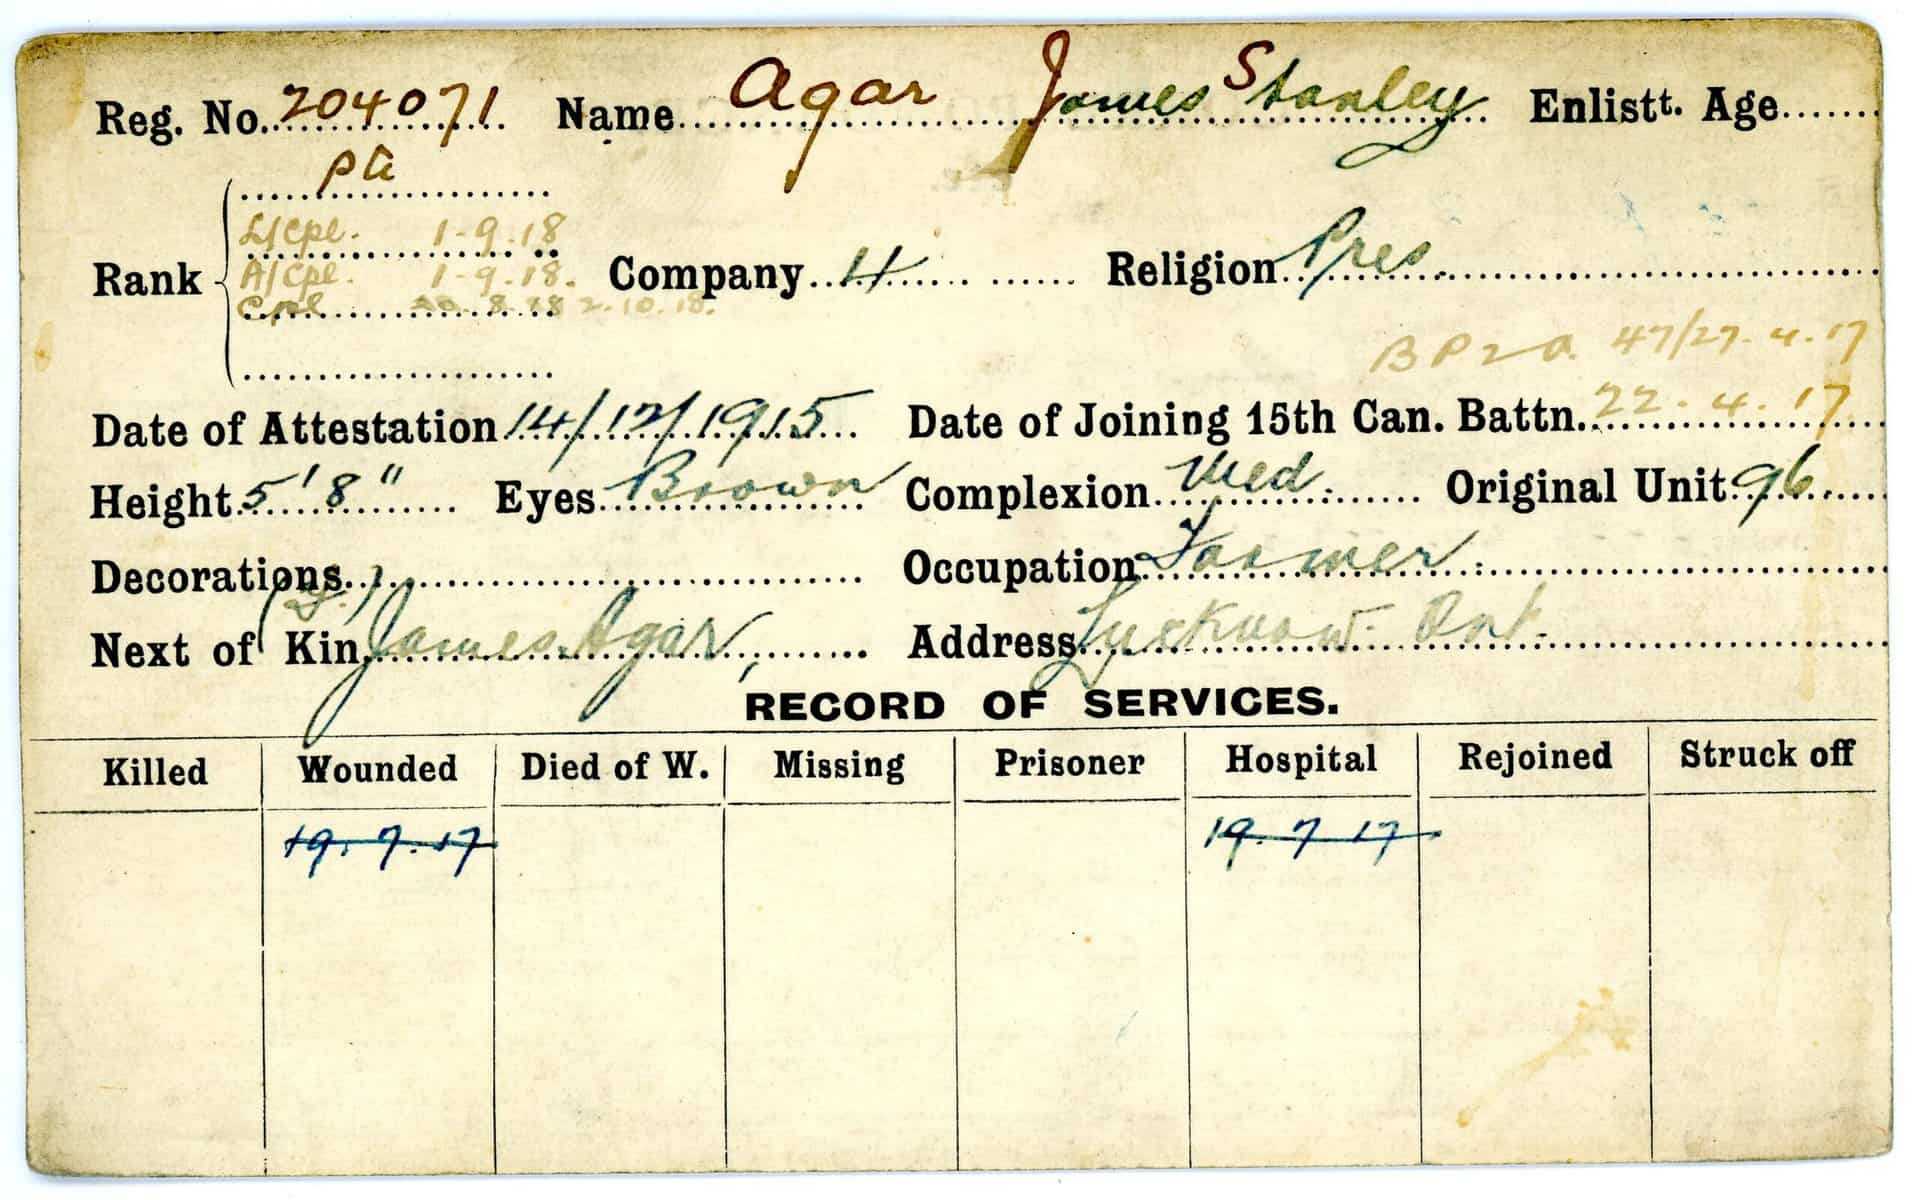 Reg. No. 204071 Name Agar James Stanley Enlistt. Age
Pte
L/Cpl. 1-9-18
Rank A/Cpl. 1-9-18. Company 4 Religion Pres.
Cpl 8.18 2.10.18.
47/27.4.17
Date of Attestation 14/12/1915 Date of Joining 15th Can. Battn. 22-4-17
Height 5'8" Eyes Brown Complexion Med. Original Unit 96
Decorations Occupation Farmer
Next of Kin James Agar, Address Lucknow. Ont.
RECORD OF SERVICES.
Killed Wounded Died of W. Missing Prisoner Hospital Rejoined Struck off
19.7.17 19.7 17